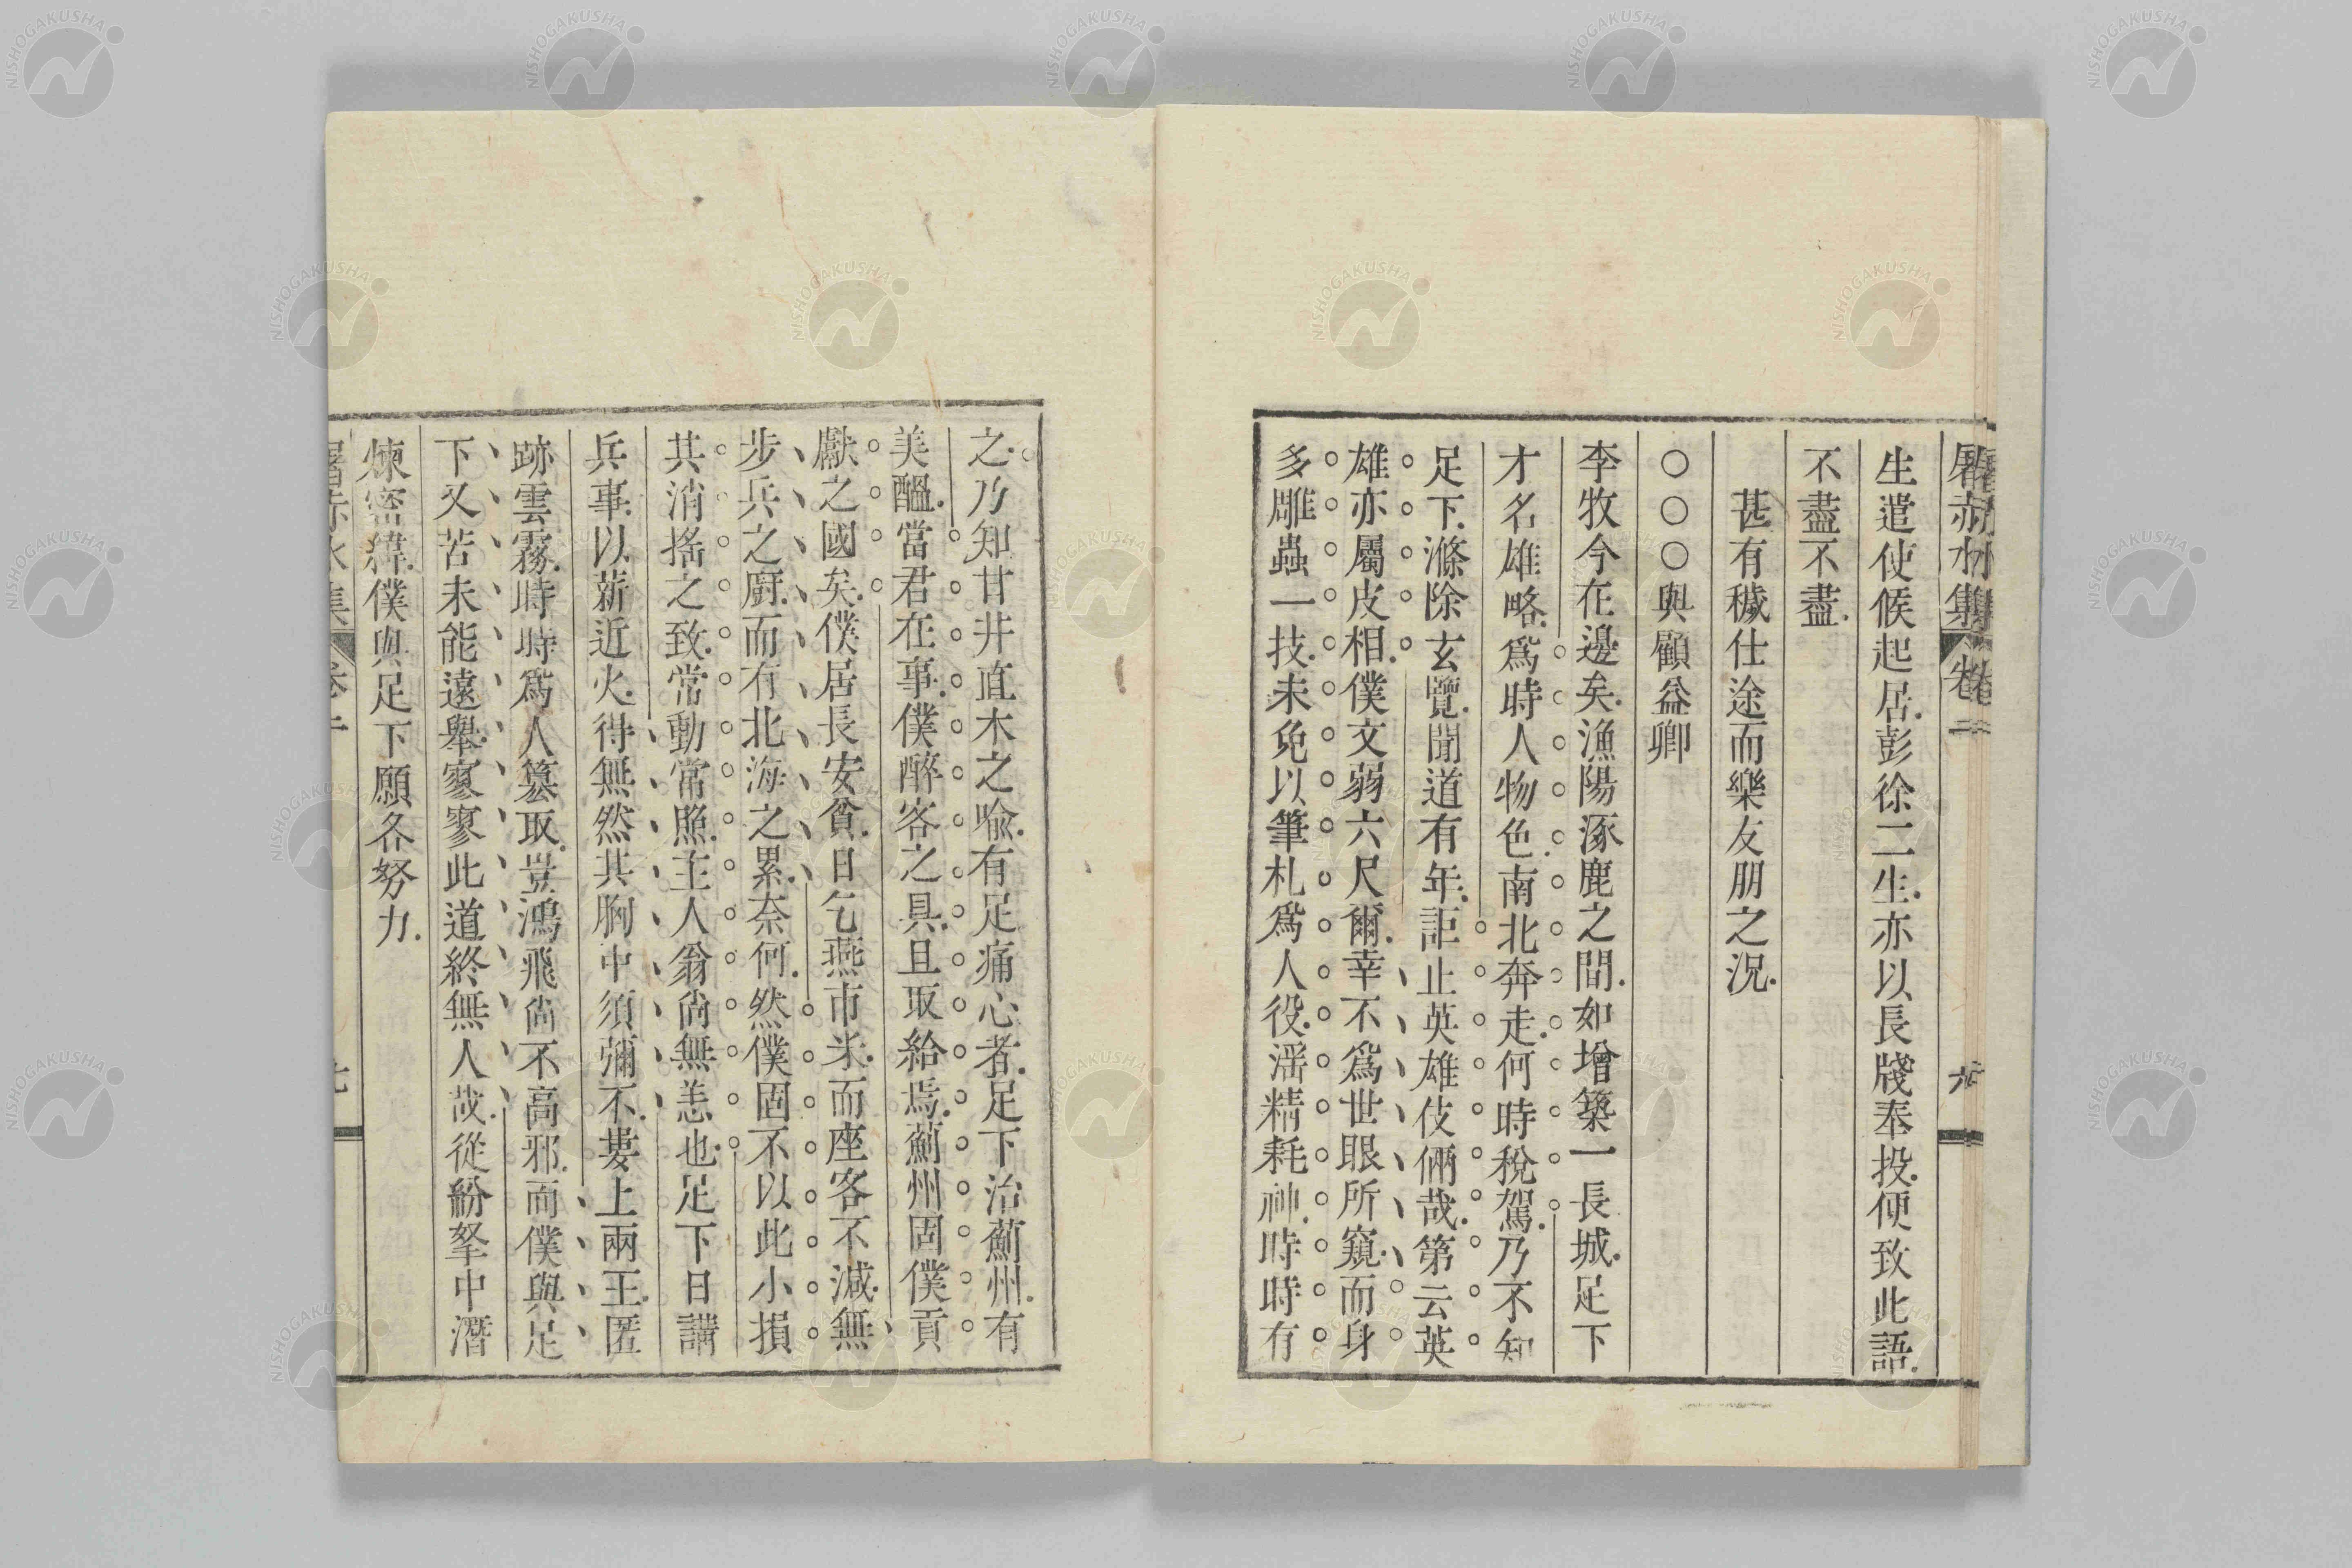 屠赤水集 卷二
生遣使候起居彭徐二生亦以長牋奉投便致此語
不盡不盡
甚有穢仕途而樂友朋之況
○○○與顧益卿
李牧今在邊矣漁陽涿鹿之間如增築一長城足下
才名雄略爲時人物色南北奔走何時稅駕乃不知
足下滌除玄覽聞道有年詎止英雄伎倆哉第云英
雄亦屬皮相僕文弱六尺爾幸不爲世眼所窺而身
多雕蟲一技未免以筆札爲人役滛精耗神時時有
之乃知甘井直木之喩有足痛心者足下治薊州有
美醞當君在事僕醉客之具且取給焉薊州固僕貢
獻之國矣僕居長安貧日乞燕市米而座客不減無
步兵之廚而有北海之累奈何然僕固不以此小損
其消搖之致常動常照主人翁尙無恙也足下日講
兵事以薪近火得無然其胸中須彌不婁上兩王匿
跡雲霧時時爲人篡取豈鴻飛尙不高邪而僕與足
下又苦未能遠舉寥寥此道終無人哉從紛拏中潛
煉密緯僕與足下願各努力
NISHOGAKUSHA